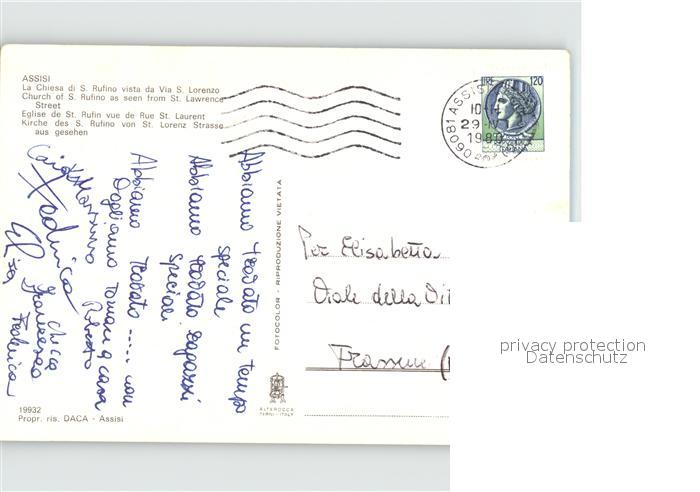 ASSISI
La Chiesa di S. Rufino vista da Via S. Lorenzo
Church of S. Rufino as seen from St. Lawrence
Street
Eglise de St. Rufin vue de Rue St. Laurent
Kirche des S. Rufino von St. Lorenz Strasse
aus gesehen
LIRE 120
06081 ASSISI
29-IV
1980
Abbiamo trovato un tempo
speciale
Abbiamo trovato ragazzi
speciali
Abbiamo trovato ..... non
vogliamo tornare a casa
Roberto
Massimo
Federica
Chica
Francesca
Federica
FOTOCOLOR - RIPRODUZIONE VIETATA
Per Elisabetta
Viale della
ALTEROCCA
TERNI - ITALY
19932
Propr. ris. DACA - Assisi
privacy protection
Datenschutz